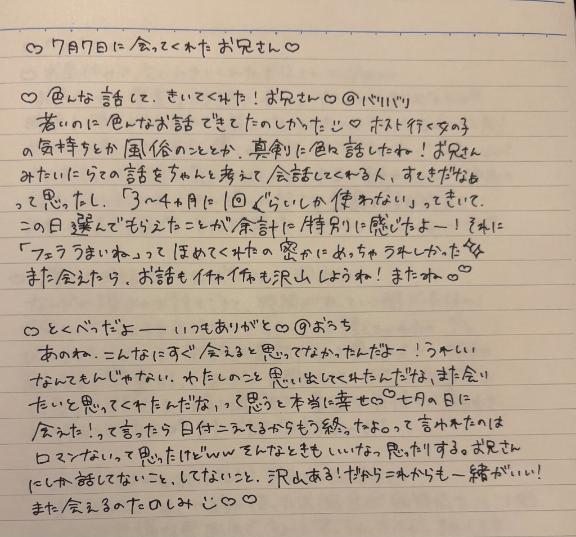 ♡ 7月7日に会ってくれたお兄さん♡
♡ 色んな話して、きいてくれた！お兄さん♡@バリバリ
若いのに色んなお話できてたのしかった♡ ホスト行く女の子
の気持ちとか風俗のこととか、真剣に色々話したね！お兄さん
みたいにらての話をちゃんと考えて会話してくれる人、すてきだなぁ
って思ったし、「3〜4ヵ月に1回ぐらいしか使わない」ってきいて、
この日選んでもらえたことが余計に特別に感じたよー！それに
「フェラうまいね」ってほめてくれたの密かにめっちゃうれしかった
また会えたら、お話もイチャイチャも沢山しようね！またね♡♡
♡とくべつだよ── いつもありがと♡@おうち
あのね、こんなにすぐ会えると思ってなかったんだよー！うれしい
なんてもんじゃない。わたしのこと思い出してくれたんだな、また会い
たいと思ってくれたんだな、って思うと本当に幸せ♡♡七夕の日に
会えた！って言ったら日付こえてるからもう終ったよ。って言われたのは
ロマンないって思ったけどwwそんなときもいいなっ思ったりする。お兄さん
にしか話してないこと、してないこと、沢山ある！だからこれからも一緒がいい！
また会えるのたのしみ♡♡